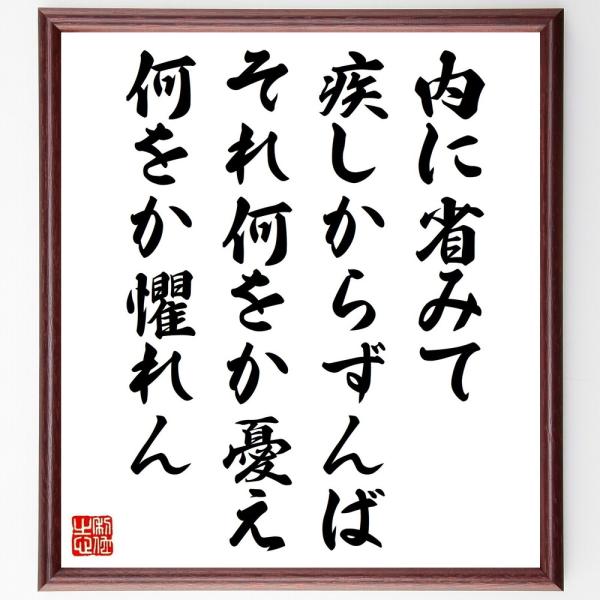 内に省みて
疾しからずんば
それ何をか憂え
何をか懼れん